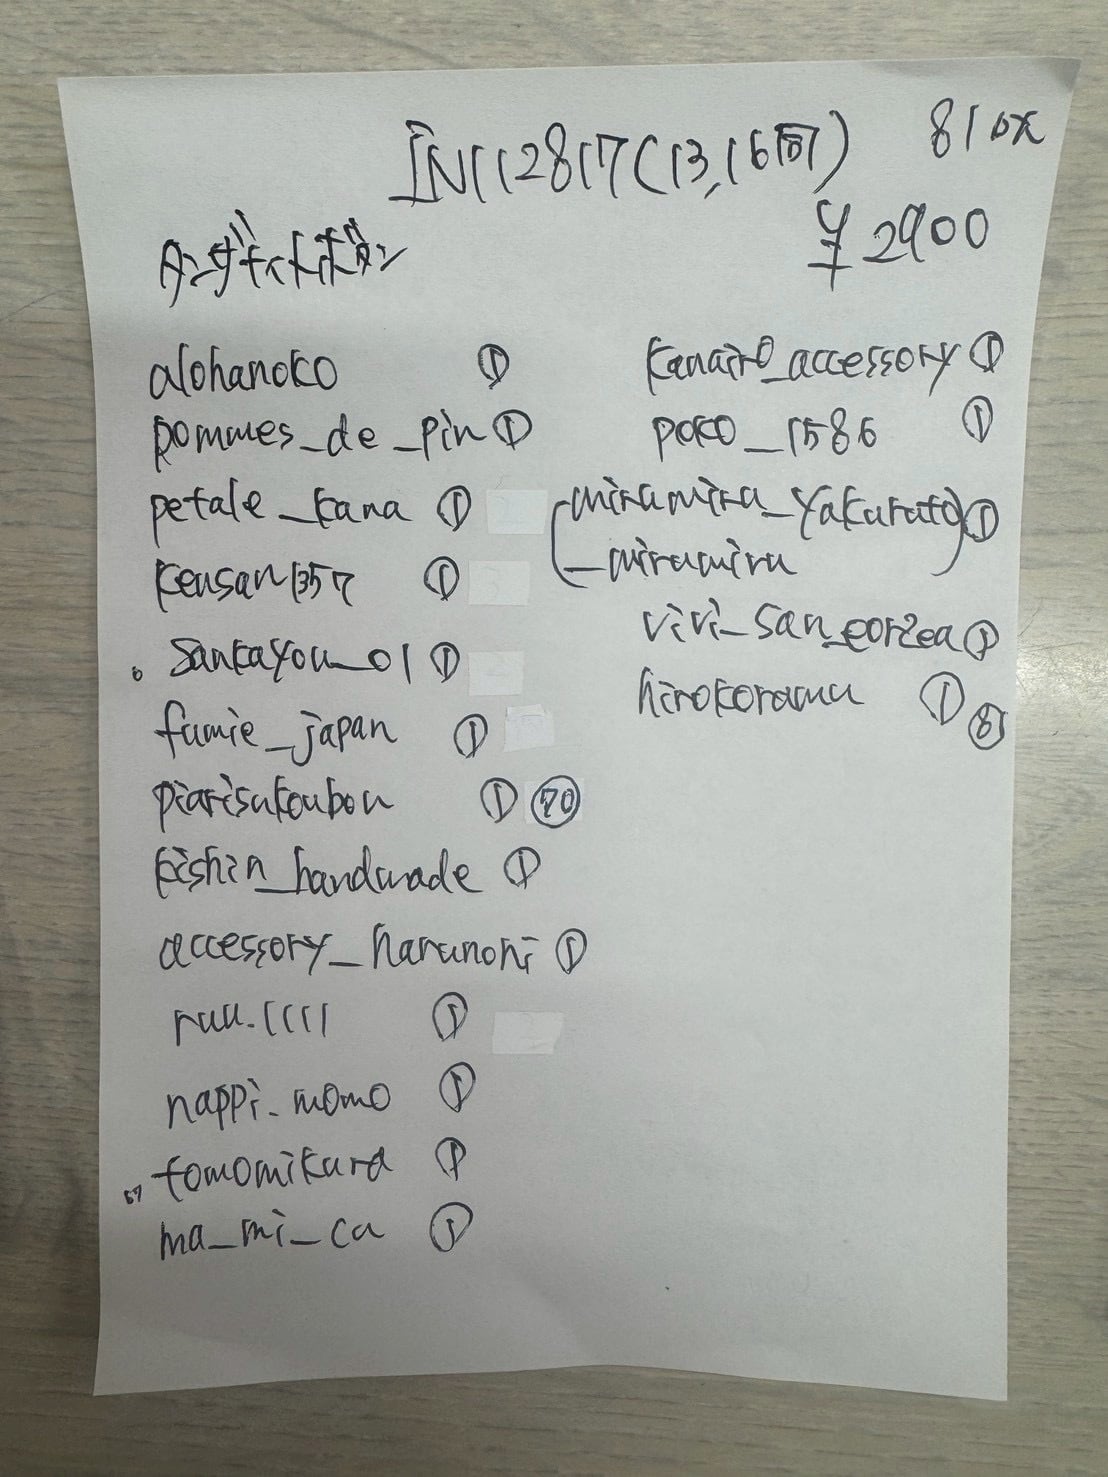 IN112817(13,16時) 81px
¥2900
alohanoko ①
pommes_de_pin ①
petale_kana ①
kensan1357 ①
sankayou_01 ①
fumie_japan ①
piarisukoubou ① 70
kishin_handmade ①
accessory_harunohi ①
ruu.1111 ①
nappi_momo ①
tomomikura ①
ma_mi_ca ①
kanairo_accessory ①
poko_1586 ①
(miramira_yakurato) ①
_miramira
vivi_san_eorzea ①
hirokoramu ① ⑧